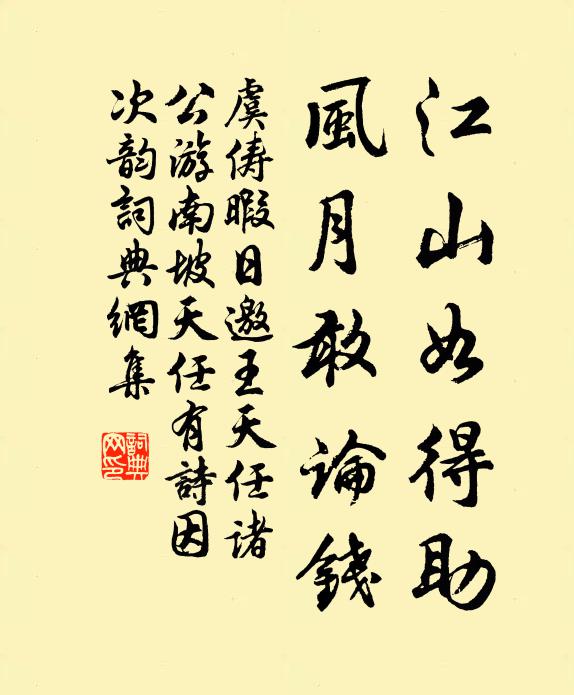 江山如得助
風月敢論錢
虞儔暇日邀王天任諸
公游南坡天任有詩因
次韵詞典網集
詞典网印